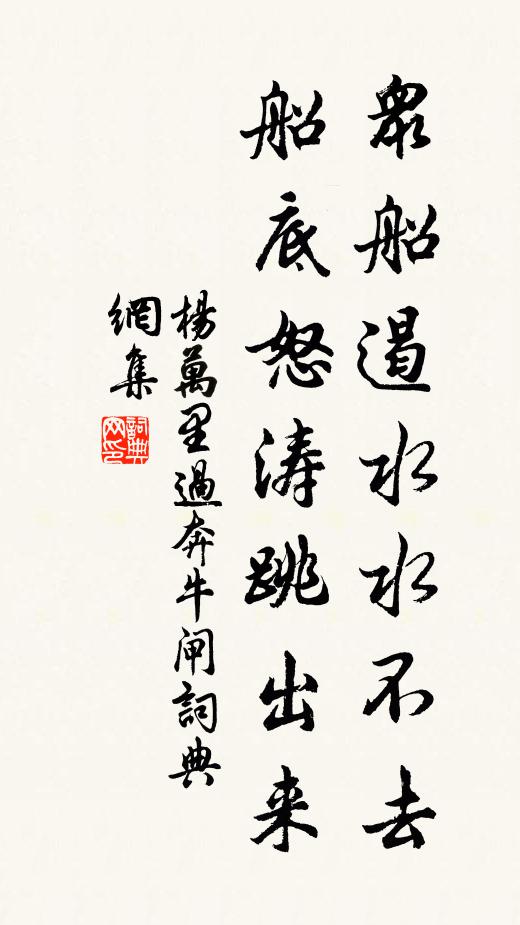 眾船遏水水不去
船底怒涛跳出来
楊萬里過奔牛闸詞典
網集
詞典网印